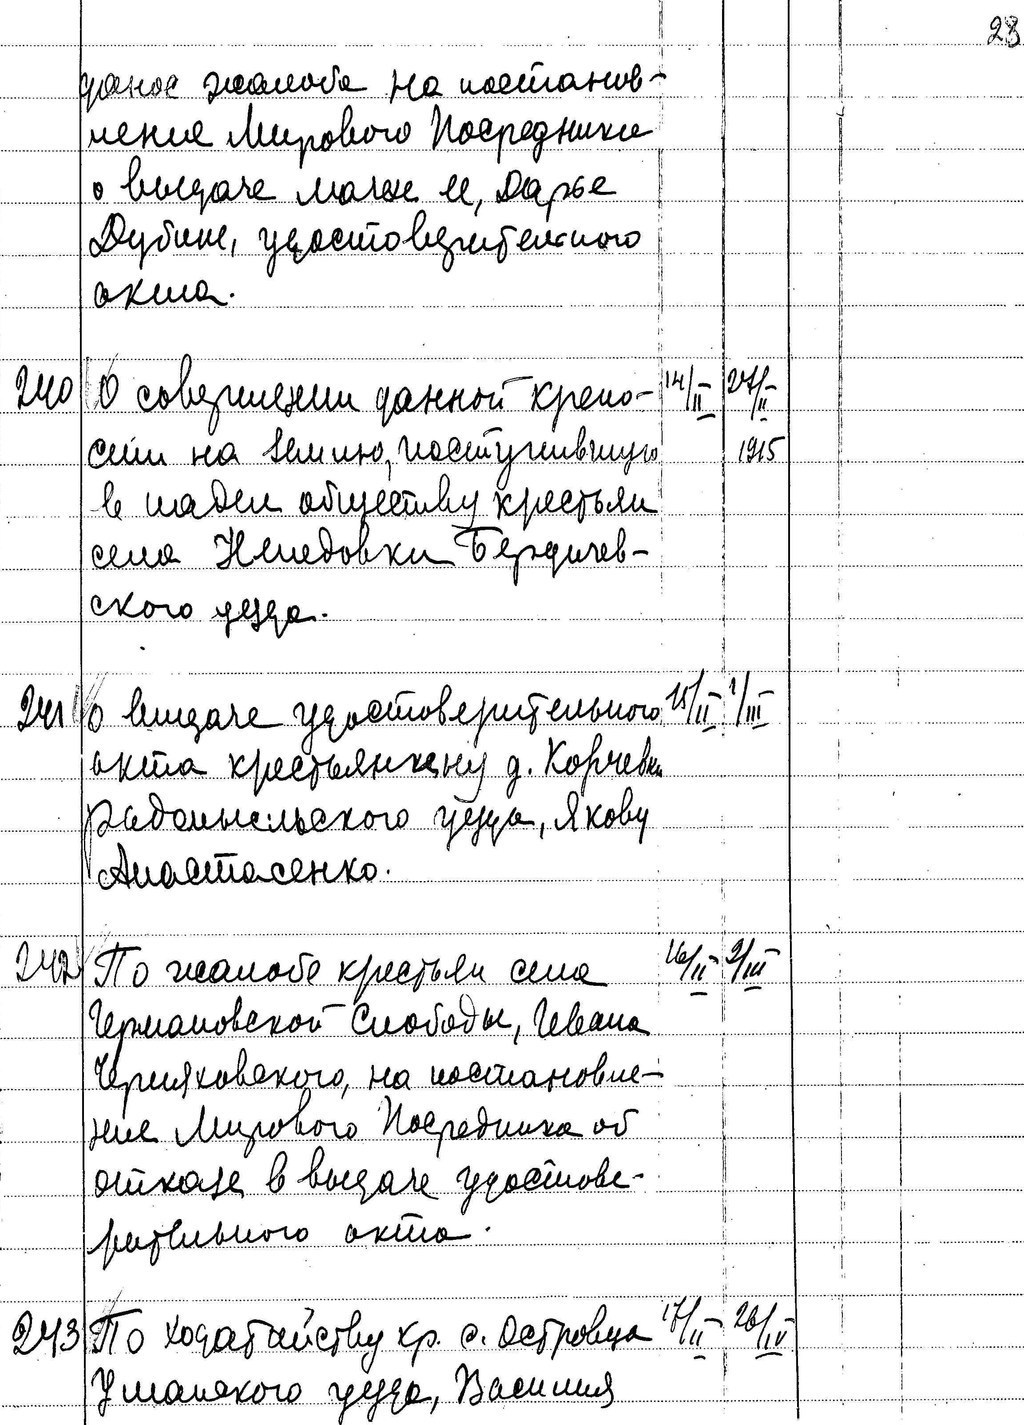 28
жалоба на постанов-
ление Мирового Посредника
о выдаче мачехе, Дарье
Дубине, удостоверительного
акта.
240 О совершении данной крепо- 14/II 27/II
сти на землю, поступившую 1915
в надел обществу крестьян
села Немедовки Бердичев-
ского уезда.
241 О выдаче удостоверительного 15/II 1/III
акта крестьянину д. Корчевки
Радомысльского уезда, Якову
Анастасенко.
242 По жалобе крестьян села 16/II 2/III
Германовской Слободы, Ивана
Черняховского, на постановле-
ние Мирового Посредника об
отказе в выдаче удостове-
рительного акта.
243 По ходатайству кр. с. Островца 17/II 26/IV
Уманского уезда, Василия